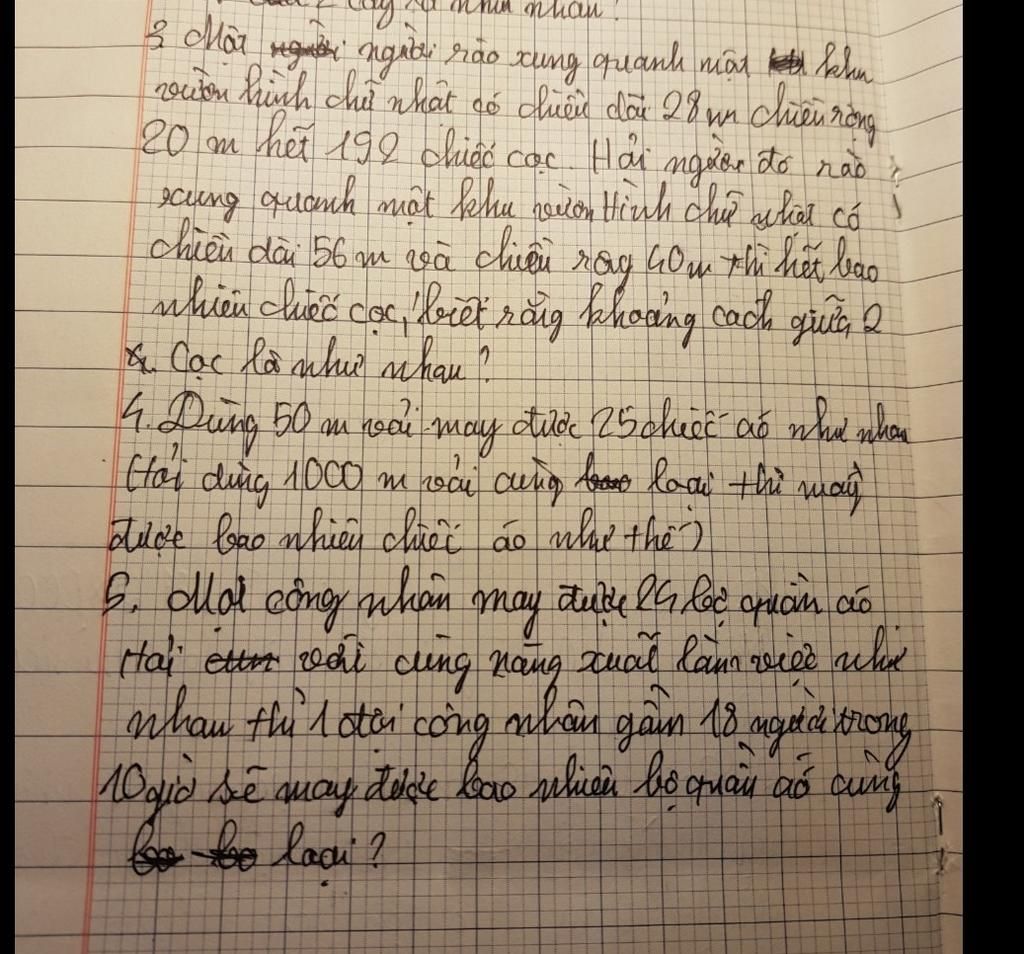 2 cây là như nhau?
3 Một người rào xung quanh một khu
vườn hình chữ nhật có chiều dài 28 m chiều rộng
20 m hết 192 chiếc cọc. Hỏi người đó rào
xung quanh một khu vườn Hình chữ nhật có
chiều dài 56 m và chiều rộng 40m thì hết bao
nhiêu chiếc cọc, biết rằng khoảng cách giữa 2
cọc là như nhau?
4. Dùng 50 m vải may được 25 chiếc áo như nhau
Hỏi dùng 1000 m vải cùng loại thì may
được bao nhiêu chiếc áo như thế?
5. Một công nhân may được 24 bộ quần áo
Hỏi với cùng năng xuất làm việc như
nhau thì 1 đội công nhân gồm 18 người trong
10 giờ sẽ may được bao nhiêu bộ quần áo cùng
loại?